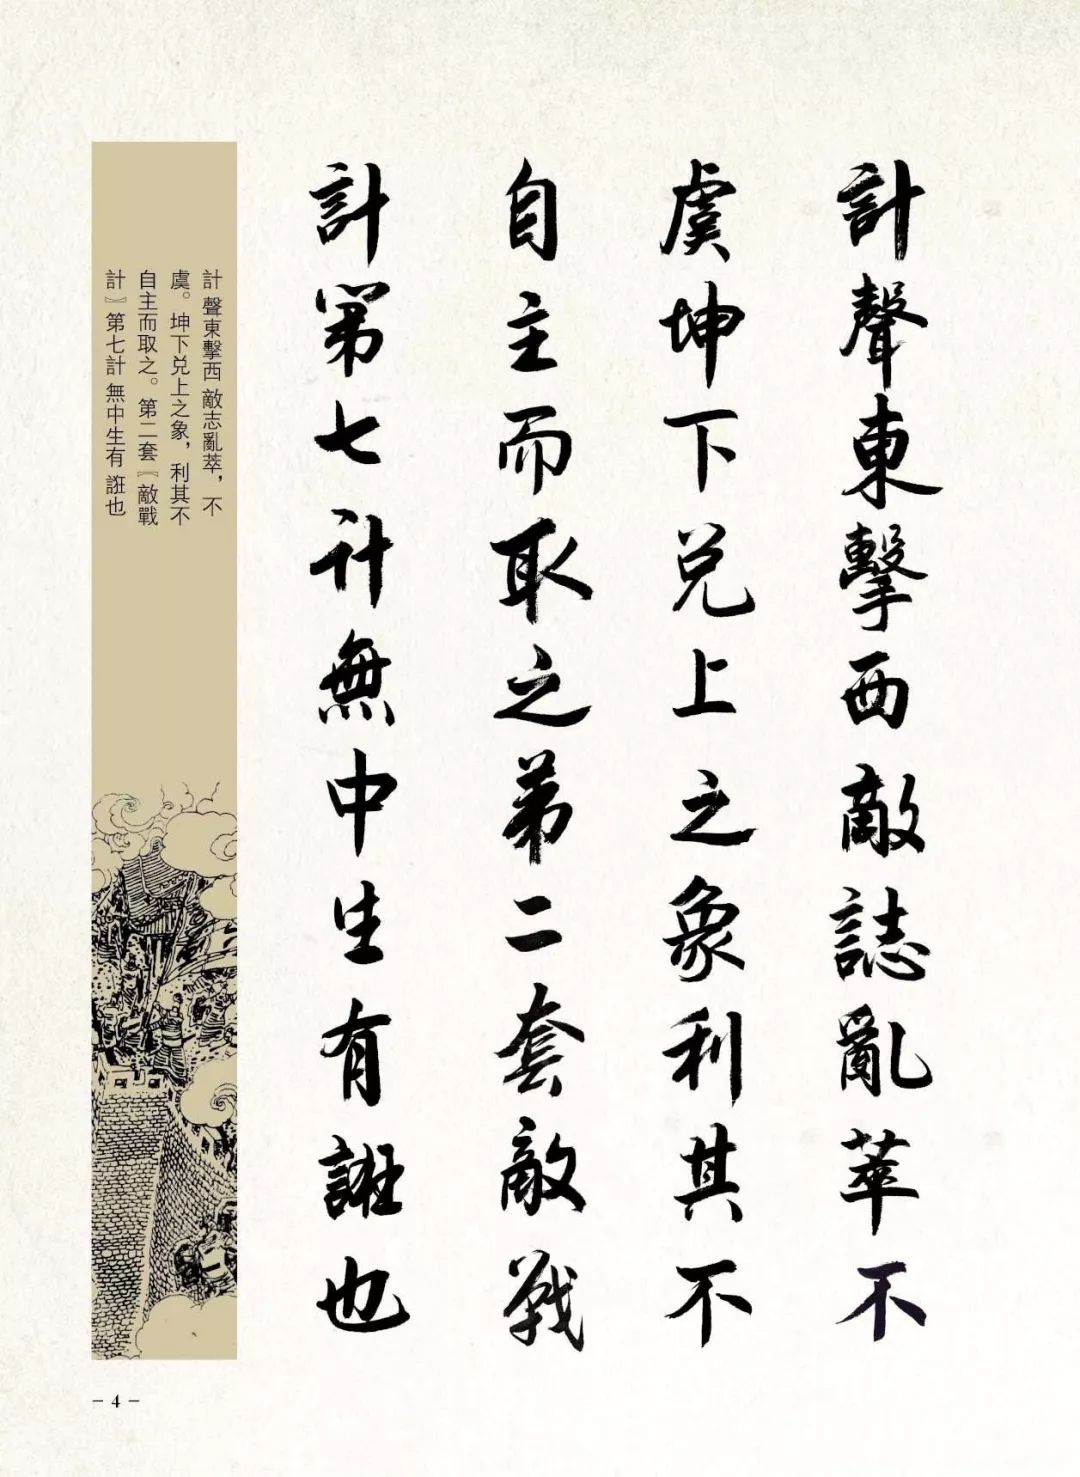 計聲東擊西敵誌亂萃不
虞坤下兑上之象利其不
自主而取之第二套敵戰
計第七计無中生有誑也
計 聲東擊西 敵志亂萃，不
虞。坤下兑上之象，利其不
自主而取之。第二套『敵戰
計』第七計 無中生有 誑也
- 4 -